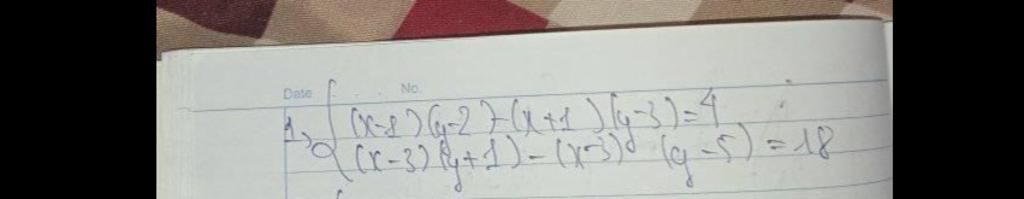 Date . . . No.
1, { (x-1)(y-2)-(x+1)(y-3)=4
(x-3)(y+1)-(x-3)(y-5)=18